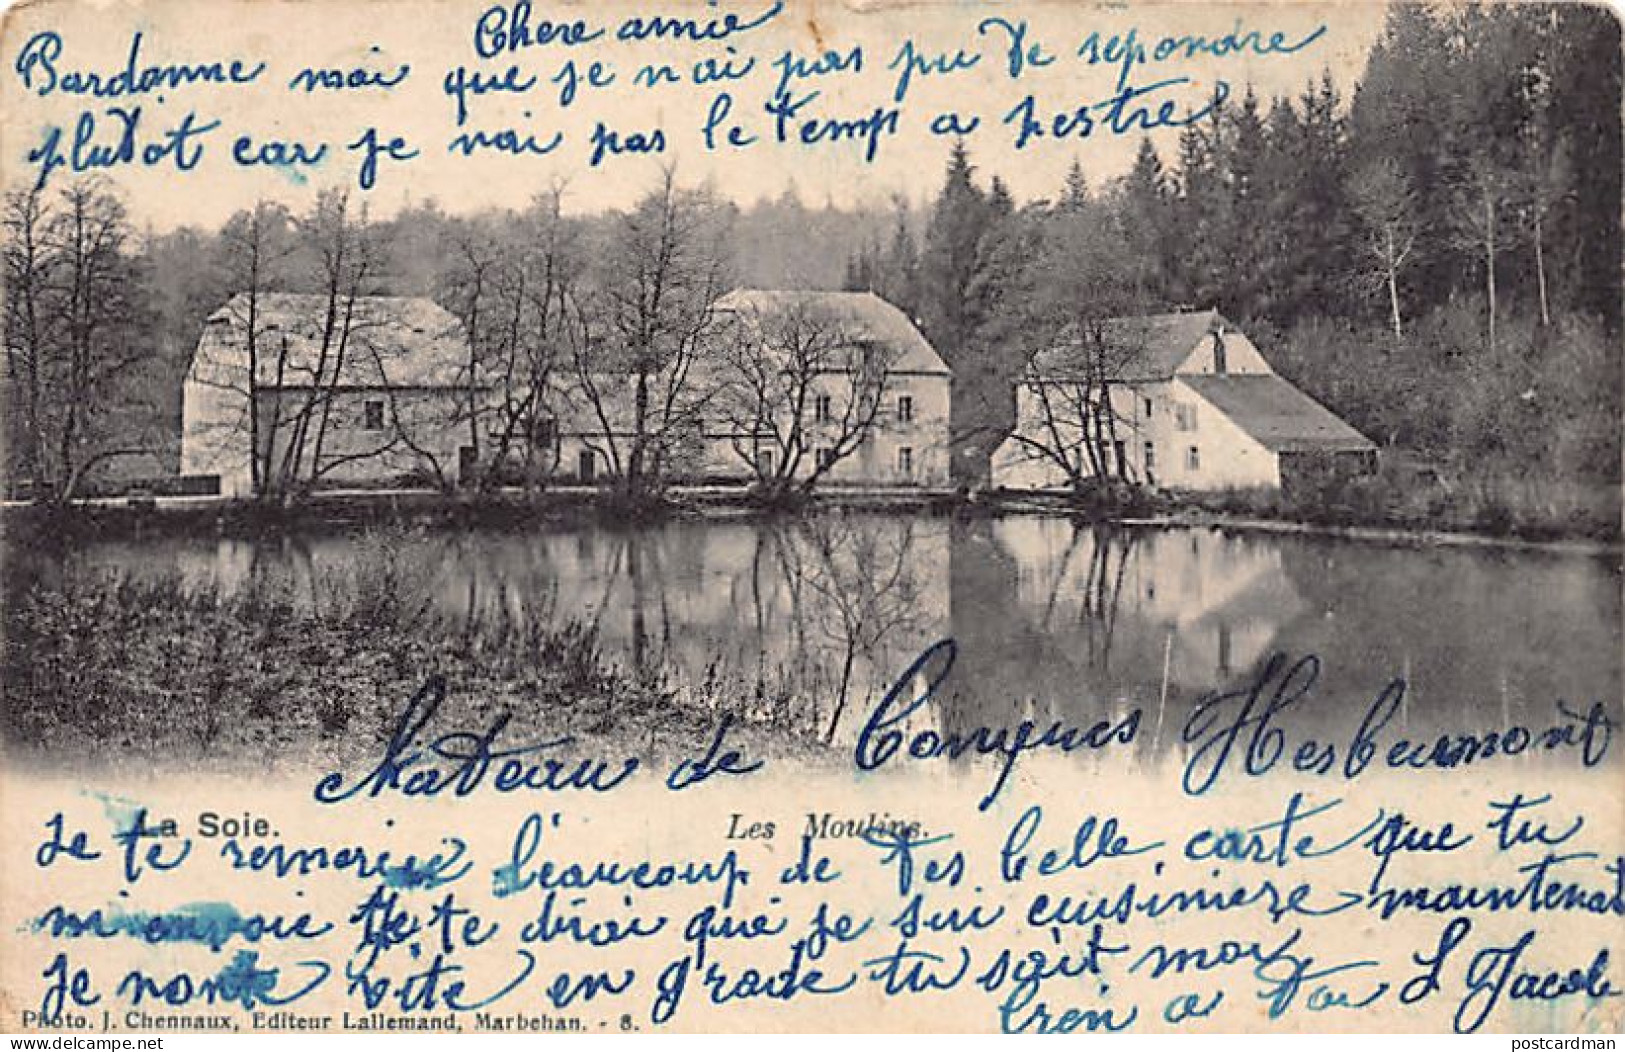 Chere amie
Pardonne moi que je n'ai pas pu te repondre
plutot car je n'ai pas le temp a restre
chateau de Conques Herbeumont
La Soie. Les Moulins.
Je te remerci beaucoup de tes belle carte que tu
m'envoie Je te dirai que je sui cuisiniere maintenat
Je monte vite en grade tu sait moi
bien a toi L Jacob
Photo. J. Chennaux, Editeur Lallemand, Marbehan. - 8.
postcardman